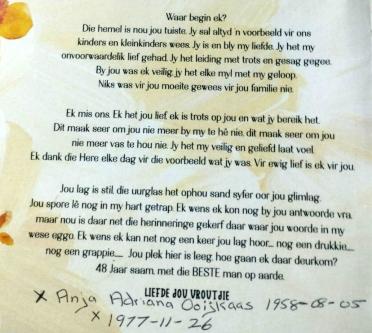 Waar begin ek?
Die hemel is nou jou tuiste. Jy sal altyd 'n voorbeeld vir ons
kinders en kleinkinders wees. Jy is en bly my liefde. Jy het my
onvoorwaardelik lief gehad. Jy het leiding met trots en gesag gegee.
By jou was ek veilig, jy het elke myl met my geloop.
Niks was vir jou moeite gewees vir jou familie nie.
Ek mis ons. Ek het jou lief ek is trots op jou en wat jy bereik het.
Dit maak seer om jou nie meer by my te hê nie, dit maak seer om jou
nie meer vas te hou nie. Jy het my veilig en geliefd laat voel.
Ek dank die Here elke dag vir die voorbeeld wat jy was. Vir ewig lief is ek vir jou.
Jou lag is stil, die uurglas het ophou sand syfer oor jou glimlag.
Jou spore lê nog in my hart getrap. Ek wens ek kon nog by jou antwoorde vra,
maar nou is daar net die herinneringe gekerf daar waar jou woorde in my
wese eggo. Ek wens ek kan net nog een keer jou lag hoor... nog een drukkie....
nog een grappie..... Jou plek hier is leeg, hoe gaan ek daar deurkom?
48 Jaar saam, met die BESTE man op aarde.
LIEFDE JOU VROUTJIE
x Anja Adriana Ooijkaas 1958-08-05
x 1977-11-26